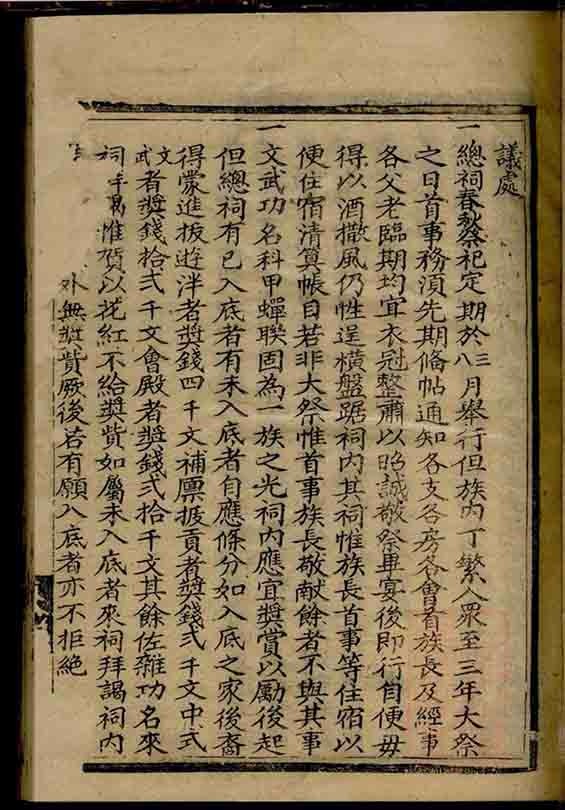 議處
一總祠春秋祭祀定期於三八月舉行但族內丁繁人眾至三年大祭
之日首事務須先期俻帖通知各支各房各會首族長及經事
各父老臨期均宜衣冠整肅以昭誠敬祭畢宴後即行自便毋
得以酒撒風仍性逞橫盤踞祠內其祠惟族長首事等住宿以
便住宿清算帳目若非大祭惟首事族長敬献餘者不與其事
一文武功名科甲蟬聯固為一族之光祠內應宜奬賞以勵後起
但總祠有已入底者有未入底者自應條分如入底之家後裔
得蒙進扳遊泮者奬錢四千文補廩拔貢者奬錢弍千文中式
文武者奬錢拾弍千文會殿者奬錢弍拾千文其餘佐雜功名來
祠惟賀以花紅不給奬貲如屬未入底者來祠拜謁祠內
外無奬貲厥後若有願入底者亦不拒絶